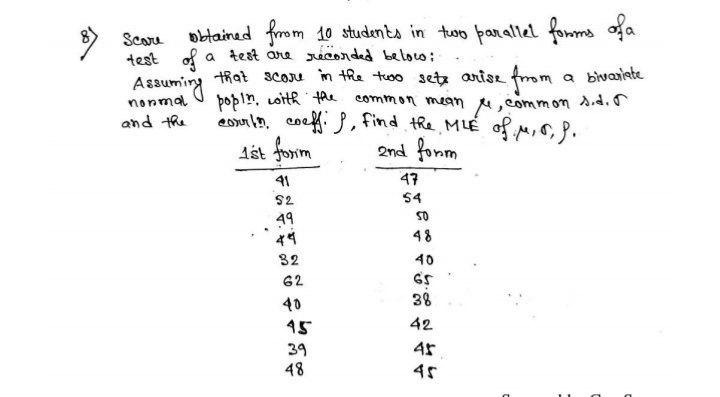 8) Score obtained from 10 students in two parallel forms of a
test of a test are recorded below:
Assuming that score in the two sets arise from a bivariate
normal popln. with the common mean μ, common s.d. σ
and the corrln. coeff. ρ, find the MLE of μ, σ, ρ.
1st form 2nd form
41 47
52 54
49 50
44 48
32 40
62 65
40 38
45 42
39 45
48 45